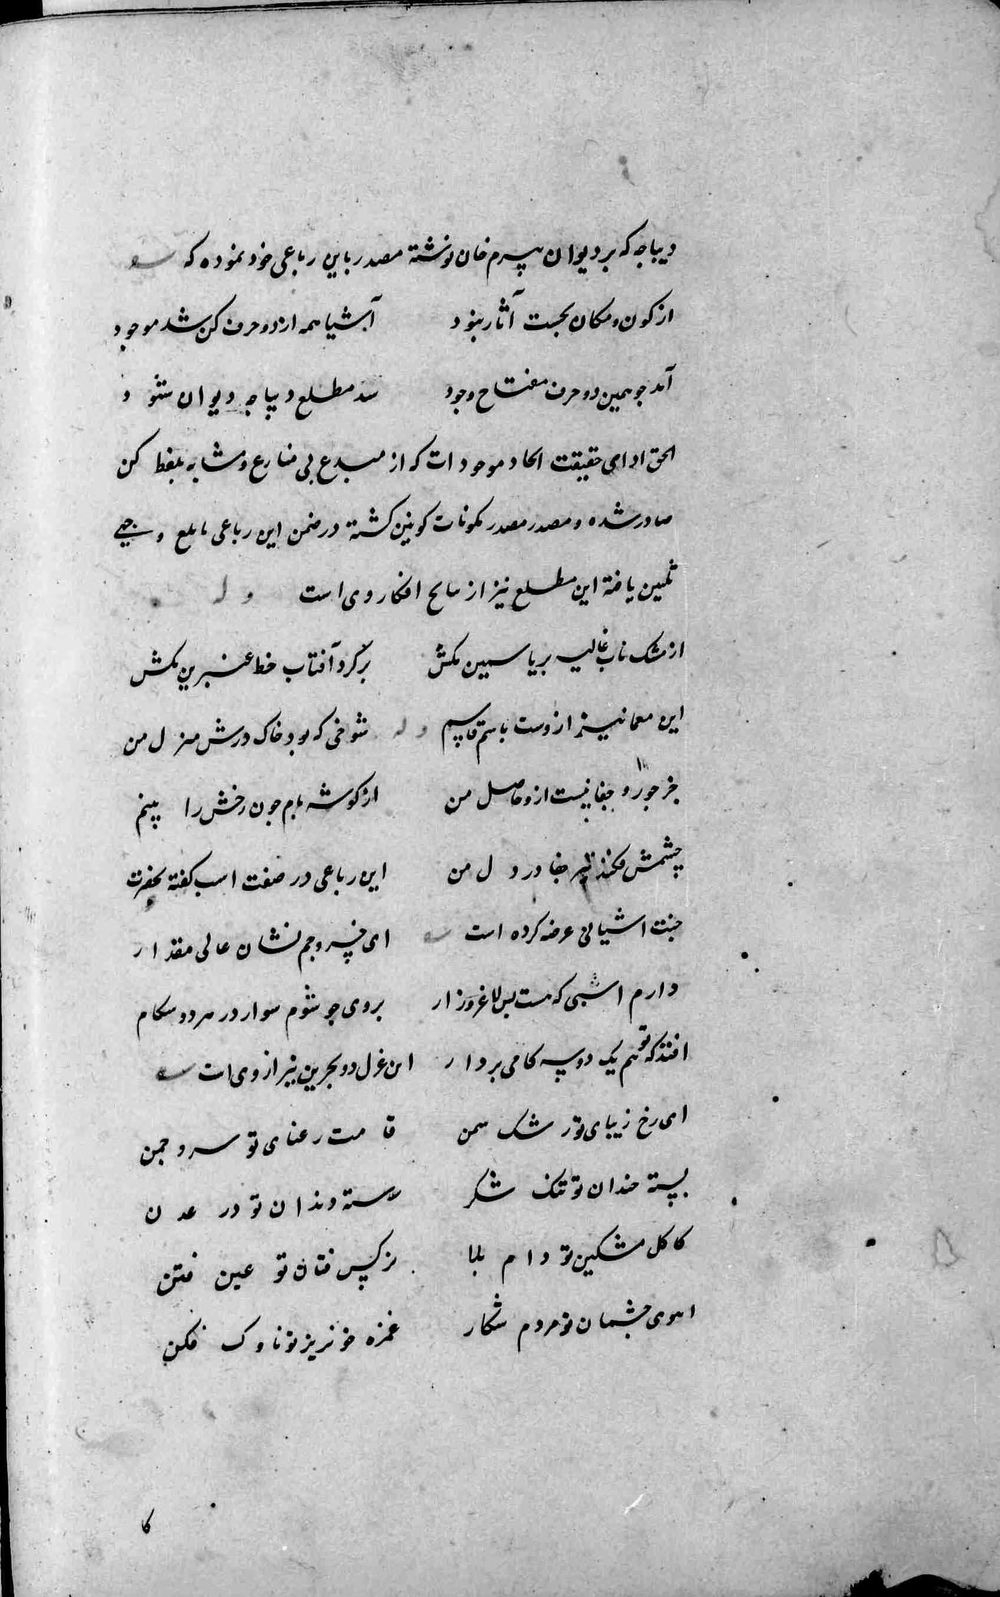 دیباجه که بر دیوان بیرم خان نوشته مصدر باین رباعی خود نموده که
از کون و مکان نخست آثار نبود اشیا همه از دو حرف کن شد موجود
آمد چو همین دو حرف مفتاح وجود شد مطلع دیباجه دیوان شهود
الحق ادای حقیقت ایجاد موجودات که از مبدع بی منازع و مشابه بلفظ کن
صادر شده و مصدر مصدر مکونات کونین کشته در ضمن این رباعی بابلغ وجهی
تلمین یافته این مطلع نیز از نتایج افکار وی است وله
از مشک ناب غالیه بر یاسمین مکش بر کرد آفتاب خط عنبرین مکش
این معما نیز ازوست باسم قاسم وله شوخی که بود خاک درش منزل من
جز جور و جفا نیست ازو حاصل من از کوشه بام چون رخش را بینم
چشمش فکند تیر جفا در دل من این رباعی در صفت اسب کفته بحضرت
جنت اشیانی عرضه کرده است ای خسرو جم نشان عالی مقدار
دارم اسبی که هست بس لاغر و زار بروی چو شوم سوار در هر دو سه کام
افتد که تو هم یک دو سه کامی بردار این غزل دو بحرین نیز از وی است
ای رخ زیبای تو رشک سمن قامت رعنای تو سرو چمن
پسته خندان تو تنک شکر رسته دندان تو در عدن
کاکل مشکین تو دام بلا نرکس فتان تو عین فتن
اهوی چشمان تو مردم شکار غمزه خونریز تو ناوک فکن
کا